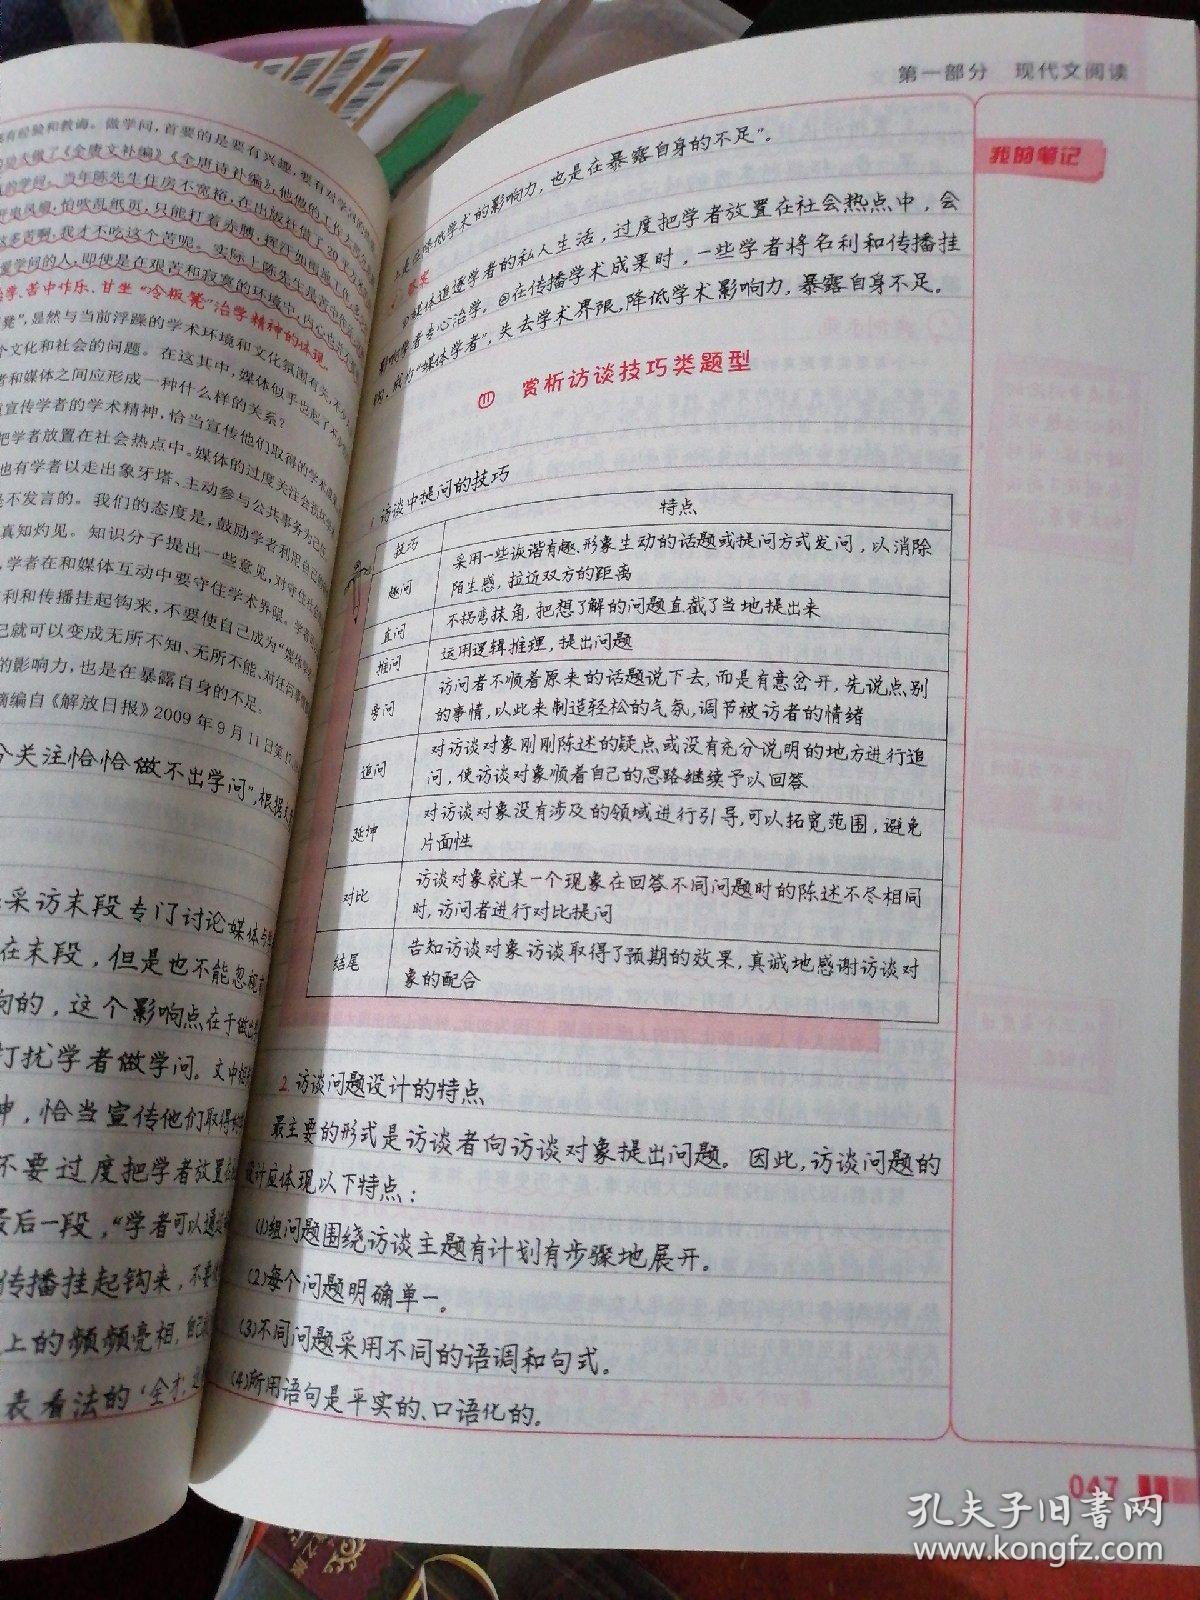 有经验和教诲。做学问，首要的是要有兴趣，要有对学问的
做了《全唐文补编》《全唐诗补编》，他做的工作
学问。当年陈先生住房不宽裕，在出版社借了20平方
电风扇，怕吹乱纸页，只能打着赤膊，挥汗如雨地工作
这多苦啊，我才不吃这个苦呢。实际上陈先生是苦中作乐
学问的人，即使是在艰苦和寂寞的环境中，内心也
学、苦中作乐、甘坐“冷板凳”治学精神的体现。
凳”，是然与当前浮躁的学术环境和文化氛围有关
个文化和社会的问题。在这其中，媒体似乎也起了
者和媒体之间应形成一种什么样的关系？
宣传学者的学术精神，恰当宣传他们取得的学术成果
把学者放置在社会热点中。媒体的过度关注会
也有学者以走出象牙塔、主动参与公共事务为己任
是不发言的。我们的态度是，鼓励学者利用自己的
真知灼见。知识分子提出一些意见，对
学者在和媒体互动中要守住学术界限。学者
利和传播挂起钩来，不要使自己成为“媒体学
己就可以变成无所不知、无所不能、对任何事
的影响力，也是在暴露自身的不足。
摘编自《解放日报》2009年9月11日第17
分关注恰恰做不出学问”，根据
采访末段专门讨论媒体与
在末段，但是也不能忽视
向的，这个影响点在于做出
打扰学者做学问。文中
神，恰当宣传他们取得
不要过度把学者放置在
最后一段，“学者可以通过
传播挂起钩来，不要
上的频频亮相，自己
表看法的‘全才’，
第一部分 现代文阅读
我的笔记
是在降低学术的影响力，也是在暴露自身的不足”。
答案
①媒体追逐学者的私人生活，过度把学者放置在社会热点中，会
影响学者专心治学。②在传播学术成果时，一些学者将名利和传播挂
钩，成为“媒体学者”，失去学术界限，降低学术影响力，暴露自身不足。
⑪ 赏析访谈技巧类题型
1 访谈中提问的技巧
技巧 特点
趣问 采用一些诙谐有趣、形象生动的话题或提问方式发问，以消除
陌生感，拉近双方的距离
直问 不拐弯抹角，把想了解的问题直截了当地提出来
推问 运用逻辑推理，提出问题
旁问 访问者不顺着原来的话题说下去，而是有意岔开，先说点别
的事情，以此来制造轻松的气氛，调节被访者的情绪
追问 对访谈对象刚刚陈述的疑点或没有充分说明的地方进行追
问，使访谈对象顺着自己的思路继续予以回答
延伸 对访谈对象没有涉及的领域进行引导，可以拓宽范围，避免
片面性
对比 访谈对象就某一个现象在回答不同问题时的陈述不尽相同
时，访问者进行对比提问
结尾 告知访谈对象访谈取得了预期的效果，真诚地感谢访谈对
象的配合
2 访谈问题设计的特点
最主要的形式是访谈者向访谈对象提出问题。因此，访谈问题的
设计应体现以下特点：
(1)组问题围绕访谈主题有计划有步骤地展开。
(2)每个问题明确单一。
(3)不同问题采用不同的语调和句式。
(4)所用语句是平实的、口语化的。
047
孔夫子旧书网
www.kongfz.com